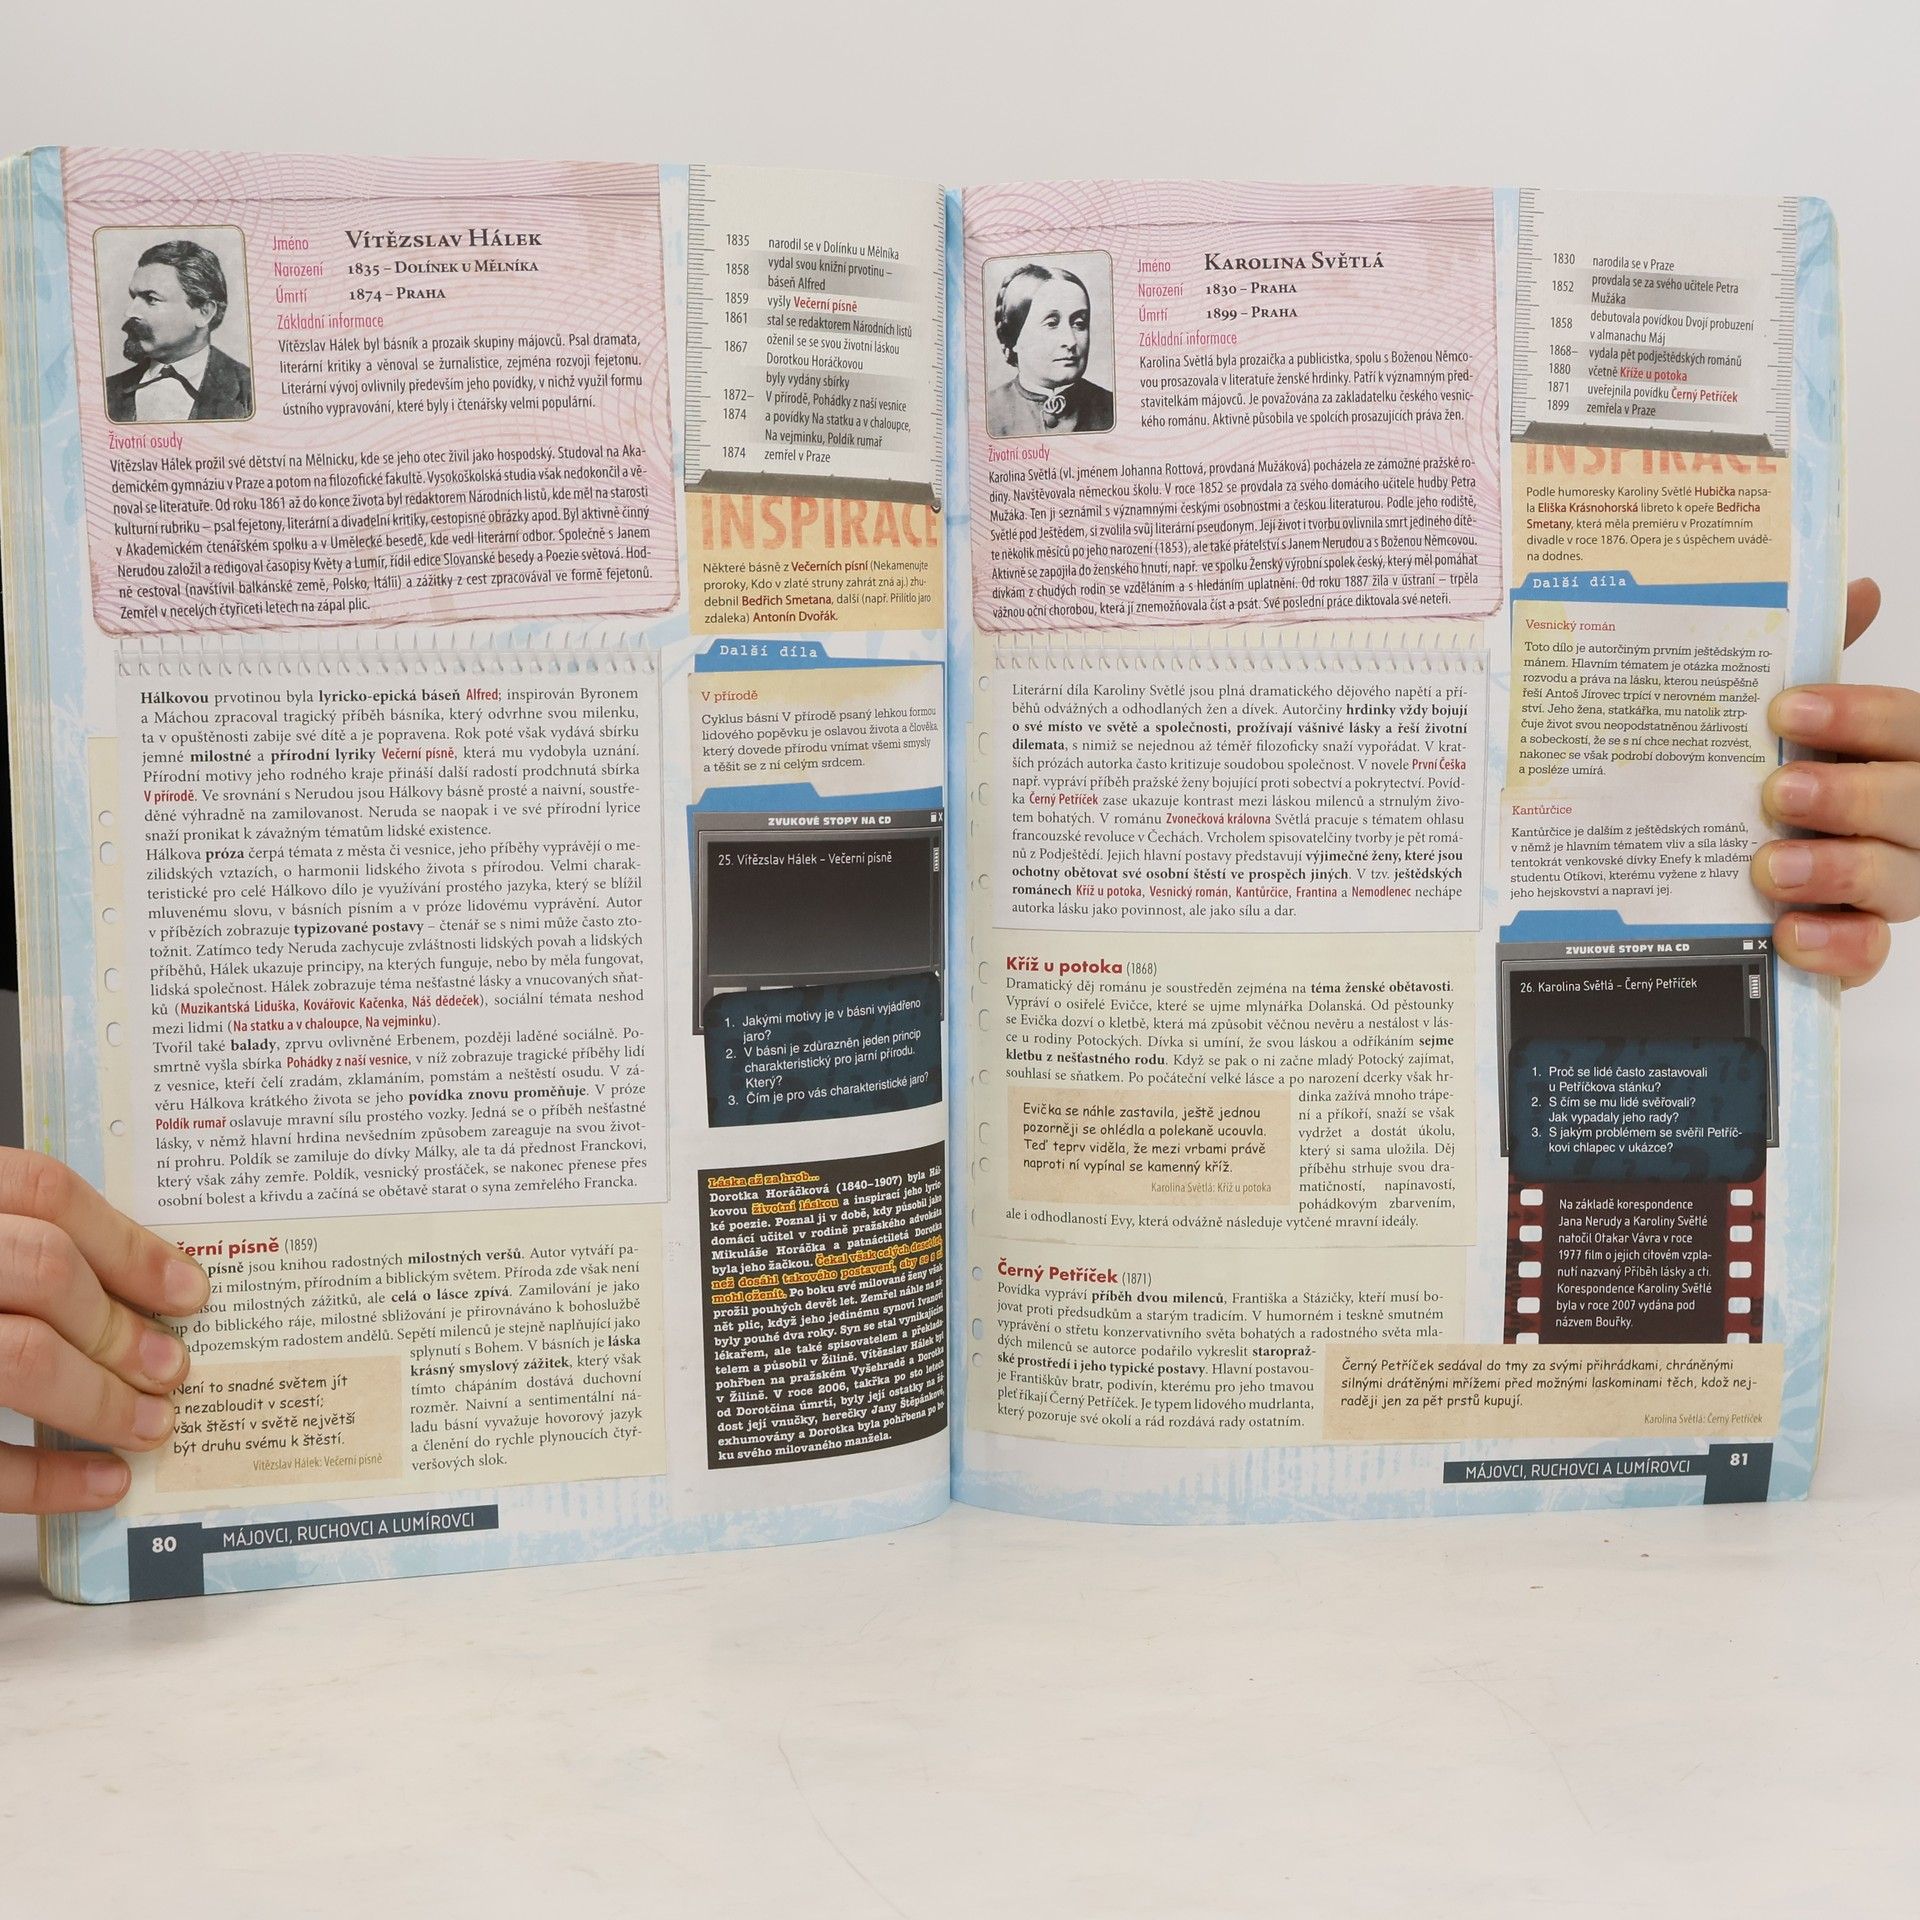 Jméno VÍTĚZSLAV HÁLEK
Narození 1835 – DOLÍNEK U MĚLNÍKA
Úmrtí 1874 – PRAHA
Základní informace
Vítězslav Hálek byl básník a prozaik skupiny májovců. Psal dramata,
literární kritiky a věnoval se žurnalistice, zejména rozvoji fejetonu.
Literární vývoj ovlivnily především jeho povídky, v nichž využil formu
ústního vypravování, které byly i čtenářsky velmi populární.
Životní osudy
Vítězslav Hálek prožil své dětství na Mělnicku, kde se jeho otec živil jako hospodský. Studoval na Aka-
demickém gymnáziu v Praze a potom na filozofické fakultě. Vysokoškolská studia však nedokončil a vě-
noval se literatuře. Od roku 1861 až do konce života byl redaktorem Národních listů, kde měl na starosti
kulturní rubriku – psal fejetony, literární a divadelní kritiky, cestopisné obrázky apod. Byl aktivně činný
v Akademickém čtenářském spolku a v Umělecké besedě, kde vedl literární odbor. Společně s Janem
Nerudou založil a redigoval časopisy Květy a Lumír, řídil edice Slovanské besedy a Poezie světová. Hod-
ně cestoval (navštívil balkánské země, Polsko, Itálii) a zážitky z cest zpracovával ve formě fejetonů.
Zemřel v necelých čtyřiceti letech na zápal plic.
Hálkovou prvotinou byla lyricko-epická báseň Alfred; inspirován Byronem
a Máchou zpracoval tragický příběh básníka, který odvrhne svou milenku,
ta v opuštěnosti zabije své dítě a je popravena. Rok poté však vydává sbírku
jemné milostné a přírodní lyriky Večerní písně, která mu vydobyla uznání.
Přírodní motivy jeho rodného kraje přináší další radostí prodchnutá sbírka
V přírodě. Ve srovnání s Nerudou jsou Hálkovy básně prosté a naivní, soustře-
děné výhradně na zamilovanost. Neruda se naopak i ve své přírodní lyrice
snaží pronikat k závažným tématům lidské existence.
Hálkova próza čerpá témata z města či vesnice, jeho příběhy vyprávějí o me-
zilidských vztazích, o harmonii lidského života s přírodou. Velmi charak-
teristické pro celé Hálkovo dílo je využívání prostého jazyka, který se blížil
mluvenému slovu, v básních písním a v próze lidovému vyprávění. Autor
v příbězích zobrazuje typizované postavy – čtenář se s nimi může často zto-
tožnit. Zatímco tedy Neruda zachycuje zvláštnosti lidských povah a lidských
příběhů, Hálek ukazuje principy, na kterých funguje, nebo by měla fungovat,
lidská společnost. Hálek zobrazuje téma nešťastné lásky a vnucovaných sňat-
ků (Muzikantská Liduška, Kovářovic Kačenka, Náš dědeček), sociální témata neshod
mezi lidmi (Na statku a v chaloupce, Na vejminku).
Tvořil také balady, zprvu ovlivněné Erbenem, později laděné sociálně. Po-
smrtně vyšla sbírka Pohádky z naší vesnice, v níž zobrazuje tragické příběhy lidí
z vesnice, kteří čelí zradám, zklamáním, pomstám a neštěstí osudu. V zá-
věru Hálkova krátkého života se jeho povídka znovu proměňuje. V próze
Poldík rumař oslavuje mravní sílu prostého vozky. Jedná se o příběh nešťastné
lásky, v němž hlavní hrdina nevšedním způsobem zareaguje na svou život-
ní prohru. Poldík se zamiluje do dívky Málky, ale ta dá přednost Franckovi,
který však záhy zemře. Poldík, vesnický prostáček, se nakonec přenese přes
osobní bolest a křivdu a začíná se obětavě starat o syna zemřelého Francka.
erní písně (1859)
písně jsou knihou radostných milostných veršů. Autor vytváří pa-
zi milostným, přírodním a biblickým světem. Příroda zde však není
sou milostných zážitků, ale celá o lásce zpívá. Zamilování je jako
up do biblického ráje, milostné sbližování je přirovnáváno k bohoslužbě
adpozemským radostem andělů. Sepětí milenců je stejně naplňující jako
splynutí s Bohem. V básních je láska
krásný smyslový zážitek, který však
tímto chápáním dostává duchovní
rozměr. Naivní a sentimentální ná-
ladu básní vyvažuje hovorový jazyk
a členění do rychle plynoucích čtyř-
veršových slok.
Není to snadné světem jít
a nezabloudit v scestí;
však štěstí v světě největší
být druhu svému k štěstí.
Vítězslav Hálek: Večerní písně
80 MÁJOVCI, RUCHOVCI A LUMÍROVCI
1835 narodil se v Dolínku u Mělníka
1858 vydal svou knižní prvotinu –
báseň Alfred
1859 vyšly Večerní písně
1861 stal se redaktorem Národních listů
1867 oženil se se svou životní láskou
Dorotkou Horáčkovou
byly vydány sbírky
1872– V přírodě, Pohádky z naší vesnice
1874 a povídky Na statku a v chaloupce,
Na vejminku, Poldík rumař
1874 zemřel v Praze
INSPIRACE
Některé básně z Večerních písní (Nekamenujte
proroky, Kdo v zlaté struny zahrát zná aj.) zhu-
debnil Bedřich Smetana, další (např. Přilítlo jaro
zdaleka) Antonín Dvořák.
Další díla
V přírodě
Cyklus básní V přírodě psaný lehkou formou
lidového popěvku je oslavou života a člověka,
který dovede přírodu vnímat všemi smysly
a těšit se z ní celým srdcem.
ZVUKOVÉ STOPY NA CD
25. Vítězslav Hálek – Večerní písně
1. Jakými motivy je v básni vyjádřeno
jaro?
2. V básni je zdůrazněn jeden princip
charakteristický pro jarní přírodu.
Který?
3. Čím je pro vás charakteristické jaro?
Láska až za hrob...
Dorotka Horáčková (1840–1907) byla Hál-
kovou životní láskou a inspirací jeho lyric-
ké poezie. Poznal ji v době, kdy působil jako
domácí učitel v rodině pražského advokáta
Mikuláše Horáčka a patnáctiletá Dorotka
byla jeho žačkou. Čekal však celých deset let,
než dosáhl takového postavení, aby se s ní
mohl oženit. Po boku své milované ženy však
prožil pouhých devět let. Zemřel náhle na zá-
nět plic, když jeho jedinému synovi Ivanovi
byly pouhé dva roky. Syn se stal vynikajícím
lékařem, ale také spisovatelem a překlada-
telem a působil v Žilině. Vítězslav Hálek byl
pohřben na pražském Vyšehradě a Dorotka
v Žilině. V roce 2006, takřka po sto letech
od Dorotčina úmrtí, byly její ostatky na žá-
dost její vnučky, herečky Jany Štěpánkové,
exhumovány a Dorotka byla pohřbena po bo-
ku svého milovaného manžela.
Jméno KAROLINA SVĚTLÁ
Narození 1830 – PRAHA
Úmrtí 1899 – PRAHA
Základní informace
Karolina Světlá byla prozaička a publicistka, spolu s Boženou Němco-
vou prosazovala v literatuře ženské hrdinky. Patří k významným před-
stavitelkám májovců. Je považována za zakladatelku českého vesnic-
kého románu. Aktivně působila ve spolcích prosazujících práva žen.
Životní osudy
Karolina Světlá (vl. jménem Johanna Rottová, provdaná Mužáková) pocházela ze zámožné pražské ro-
diny. Navštěvovala německou školu. V roce 1852 se provdala za svého domácího učitele hudby Petra
Mužáka. Ten ji seznámil s významnými českými osobnostmi a českou literaturou. Podle jeho rodiště,
Světlé pod Ještědem, si zvolila svůj literární pseudonym. Její život i tvorbu ovlivnila smrt jediného dítě-
te několik měsíců po jeho narození (1853), ale také přátelství s Janem Nerudou a s Boženou Němcovou.
Aktivně se zapojila do ženského hnutí, např. ve spolku Ženský výrobní spolek český, který měl pomáhat
dívkám z chudých rodin se vzděláním a s hledáním uplatnění. Od roku 1887 žila v ústraní – trpěla
vážnou oční chorobou, která jí znemožňovala číst a psát. Své poslední práce diktovala své neteři.
Literární díla Karoliny Světlé jsou plná dramatického dějového napětí a pří-
běhů odvážných a odhodlaných žen a dívek. Autorčiny hrdinky vždy bojují
o své místo ve světě a společnosti, prožívají vášnivé lásky a řeší životní
dilemata, s nimiž se nejednou až téměř filozoficky snaží vypořádat. V krat-
ších prózách autorka často kritizuje soudobou společnost. V novele První Češka
např. vypráví příběh pražské ženy bojující proti sobectví a pokrytectví. Povíd-
ka Černý Petříček zase ukazuje kontrast mezi láskou milenců a strnulým živo-
tem bohatých. V románu Zvonečková královna Světlá pracuje s tématem ohlasu
francouzské revoluce v Čechách. Vrcholem spisovatelčiny tvorby je pět romá-
nů z Podještědí. Jejich hlavní postavy představují výjimečné ženy, které jsou
ochotny obětovat své osobní štěstí ve prospěch jiných. V tzv. ještědských
románech Kříž u potoka, Vesnický román, Kantůrčice, Frantina a Nemodlenec nechápe
autorka lásku jako povinnost, ale jako sílu a dar.
Kříž u potoka (1868)
Dramatický děj románu je soustředěn zejména na téma ženské obětavosti.
Vypráví o osiřelé Evičce, které se ujme mlynářka Dolanská. Od pěstounky
se Evička dozví o kletbě, která má způsobit věčnou nevěru a nestálost v lás-
ce u rodiny Potockých. Dívka si umíní, že svou láskou a odříkáním sejme
kletbu z nešťastného rodu. Když se pak o ni začne mladý Potocký zajímat,
souhlasí se sňatkem. Po počáteční velké lásce a po narození dcerky však hr-
dinka zažívá mnoho trápe-
ní a příkoří, snaží se však
vydržet a dostát úkolu,
který si sama uložila. Děj
příběhu strhuje svou dra-
matičností, napínavostí,
pohádkovým zbarvením,
ale i odhodlaností Evy, která odvážně následuje vytčené mravní ideály.
Evička se náhle zastavila, ještě jednou
pozorněji se ohlédla a polekaně ucouvla.
Teď teprv viděla, že mezi vrbami právě
naproti ní vypínal se kamenný kříž.
Karolina Světlá: Kříž u potoka
Černý Petříček (1871)
Povídka vypráví příběh dvou milenců, Františka a Stázičky, kteří musí bo-
jovat proti předsudkům a starým tradicím. V humorném i teskně smutném
vyprávění o střetu konzervativního světa bohatých a radostného světa mla-
dých milenců se autorce podařilo vykreslit staropraž-
ské prostředí i jeho typické postavy. Hlavní postavou-
je Františkův bratr, podivín, kterému pro jeho tmavou
pleť říkají Černý Petříček. Je typem lidového mudrlanta,
který pozoruje své okolí a rád rozdává rady ostatním.
Černý Petříček sedával do tmy za svými přihrádkami, chráněnými
silnými drátěnými mřížemi před možnými laskominami těch, kdož nej-
raději jen za pět prstů kupují.
Karolina Světlá: Černý Petříček
1830 narodila se v Praze
1852 provdala se za svého učitele Petra
Mužáka
1858 debutovala povídkou Dvojí probuzení
v almanachu Máj
1868– vydala pět podještědských románů
1880 včetně Kříže u potoka
1871 uveřejnila povídku Černý Petříček
1899 zemřela v Praze
INSPIRACE
Podle humoresky Karoliny Světlé Hubička napsa-
la Eliška Krásnohorská libreto k opeře Bedřicha
Smetany, která měla premiéru v Prozatímním
divadle v roce 1876. Opera je s úspěchem uvádě-
na dodnes.
Další díla
Vesnický román
Toto dílo je autorčiným prvním ještědským ro-
mánem. Hlavním tématem je otázka možnosti
rozvodu a práva na lásku, kterou neúspěšně
řeší Antoš Jírovec trpící v nerovném manžel-
ství. Jeho žena, statkářka, mu natolik ztrp-
čuje život svou neopodstatněnou žárlivostí
a sobeckostí, že se s ní chce nechat rozvést,
nakonec se však podrobí dobovým konvencím
a posléze umírá.
Kantůrčice
Kantůrčice je dalším z ještědských románů,
v němž je hlavním tématem vliv a síla lásky –
tentokrát venkovské dívky Enefy k mladému
studentu Otíkovi, kterému vyžene z hlavy
jeho hejskovství a napraví jej.
ZVUKOVÉ STOPY NA CD
26. Karolina Světlá – Černý Petříček
1. Proč se lidé často zastavovali
u Petříčkova stánku?
2. S čím se mu lidé svěřovali?
Jak vypadaly jeho rady?
3. S jakým problémem se svěřil Petříč-
kovi chlapec v ukázce?
Na základě korespondence
Jana Nerudy a Karoliny Světlé
natočil Otakar Vávra v roce
1977 film o jejich citovém vzpla-
nutí nazvaný Příběh lásky a cti.
Korespondence Karoliny Světlé
byla v roce 2007 vydána pod
názvem Bouřky.
MÁJOVCI, RUCHOVCI A LUMÍROVCI 81